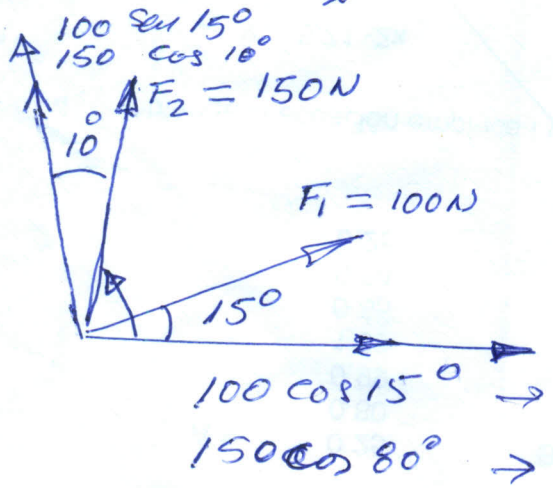 100 Sen 15°
150 cos 10°
F₂ = 150N
10°
F₁ = 100N
15°
100 cos 15° →
150 cos 80° →